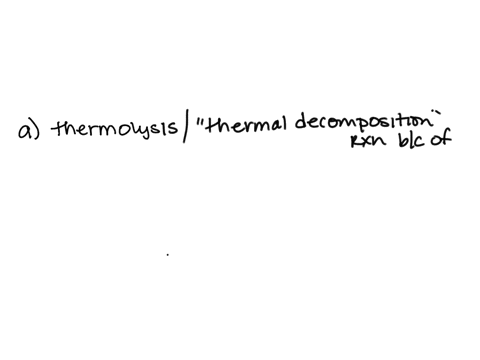 a) thermolysis / "thermal decomposition"
rxn b/c of